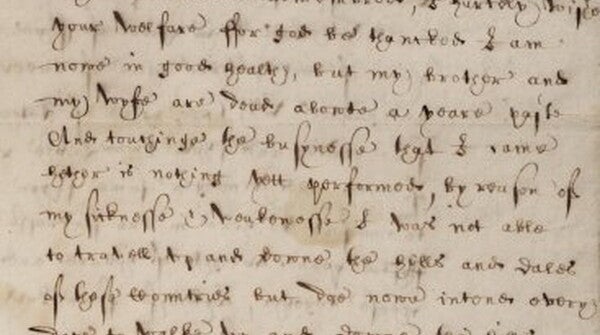 I hartely
your welfare ffor god be thancked I am
nowe in good health, but my brother and
my wyfe are dead aboute a yeare paste
And touchinge the busynesse that I came
hether is nothing yett performed, by reason of
my sicknesse & weakenesse I was not able
to travell up and downe the hills and dales
of these countries but doe nowe intend every
daye to walke up and downe the